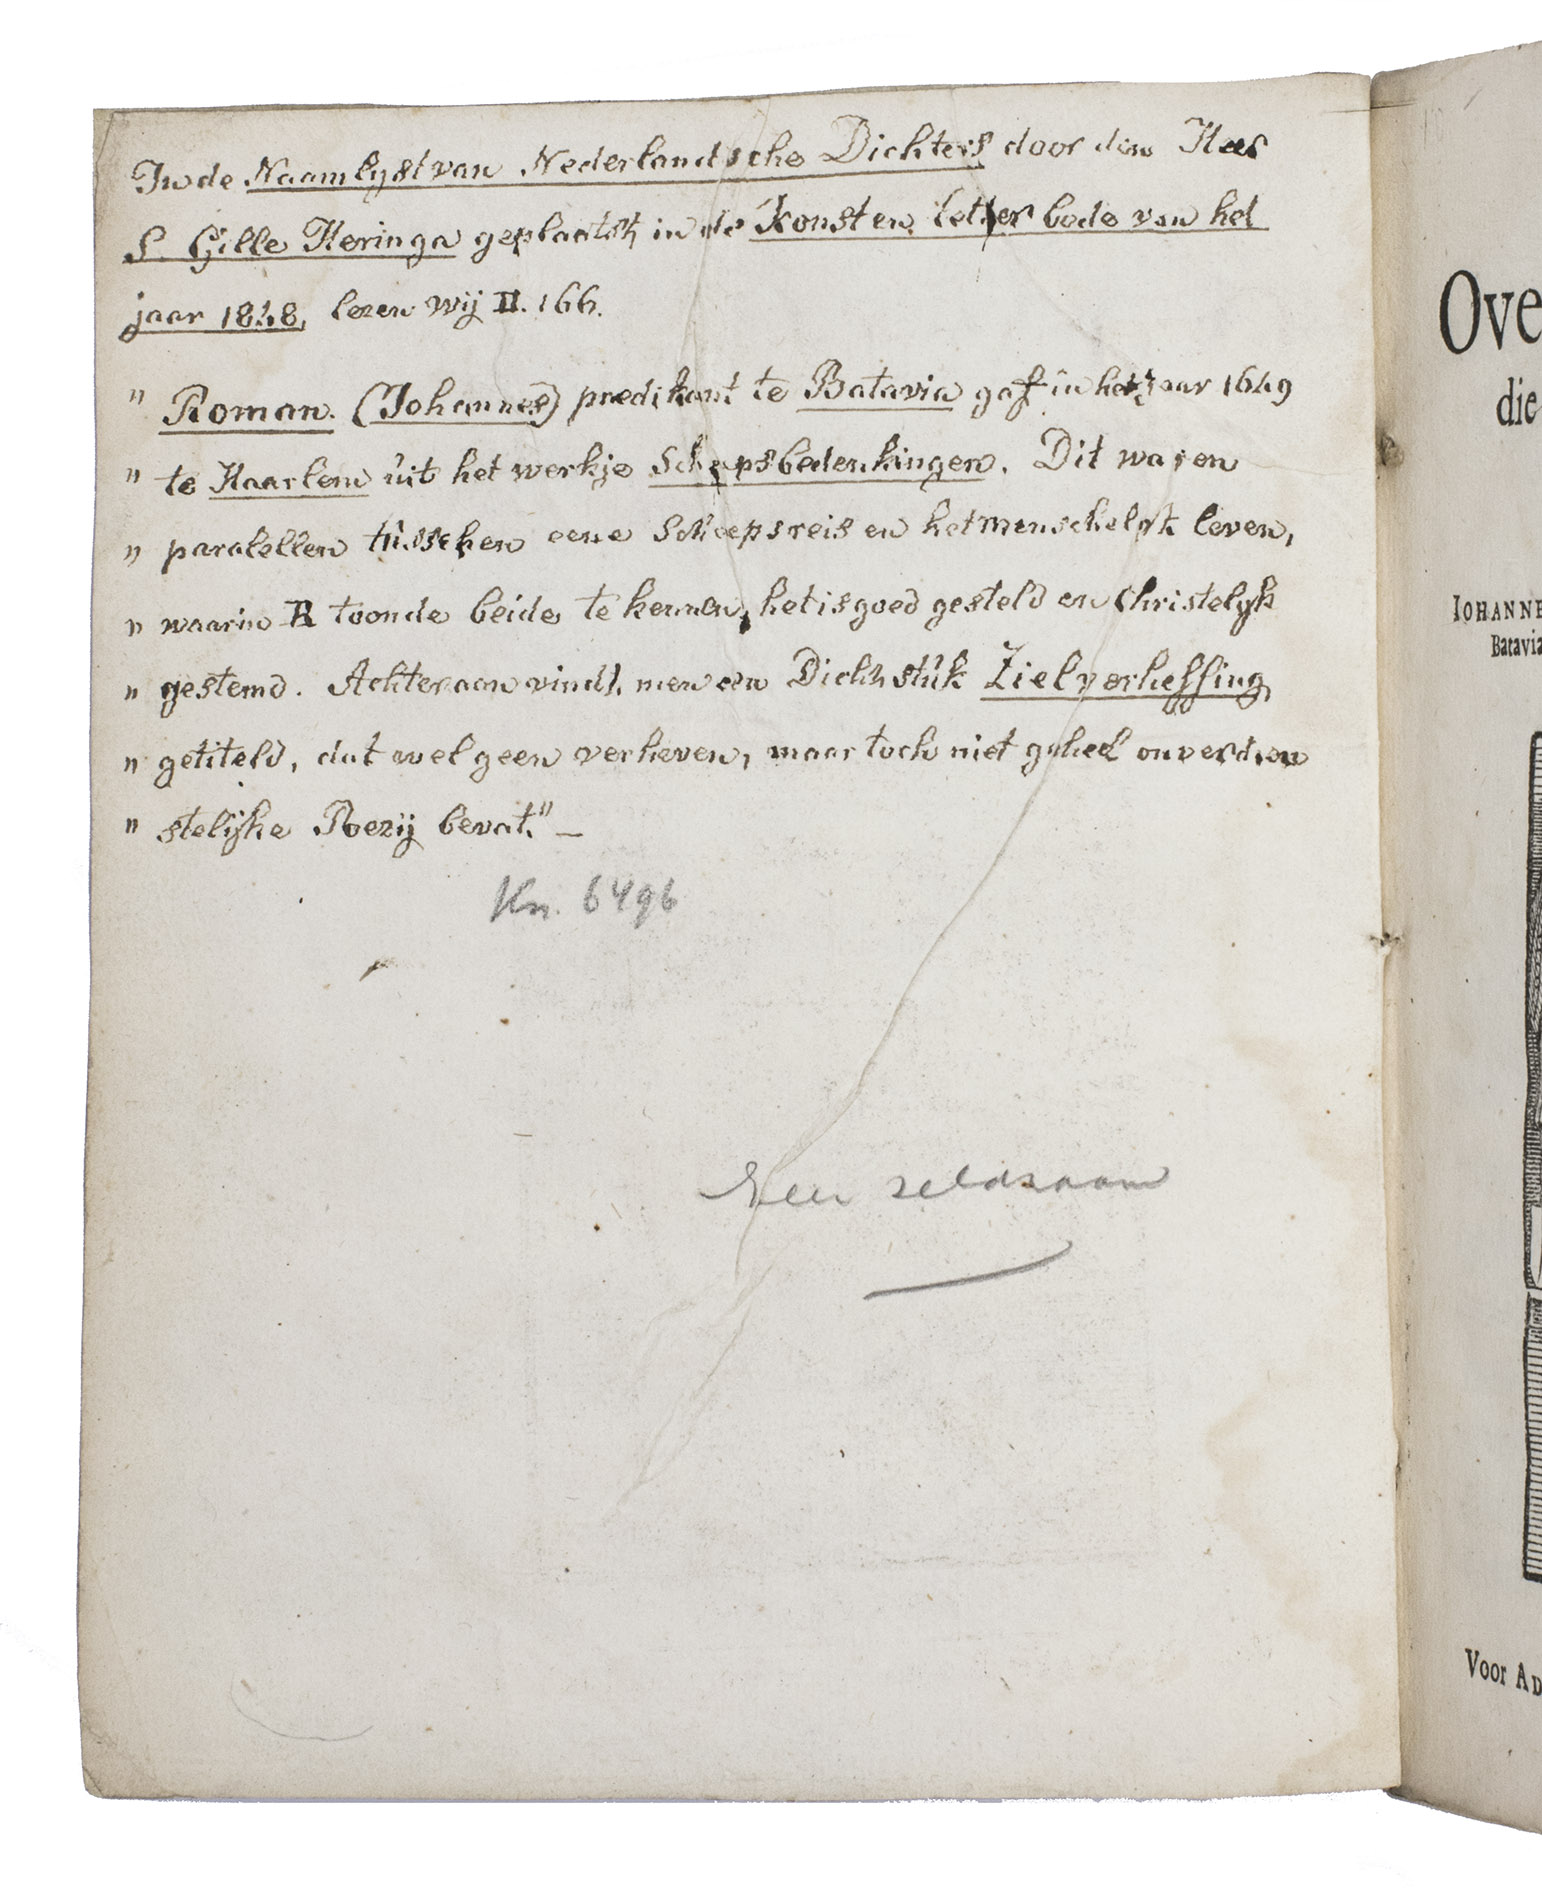 In de Naamlyst van Nederlandsche Dichters door den Heer
S. Gille Heringa geplaatst, in de Konst en letter bode van het
jaar 1848, lezen wij II. 166.
" Roman. (Johannes) predikant te Batavia gaf in het jaar 1649
" te Haarlem uit het werkje Scheepsbedenkingen. Dit waren
" paralellen tusschen eene Scheepsreis en het menschelyk leven,
" waarin R toonde beide te kennen, het is goed gesteld en Christelyk
" gestemd. Achteraan vindt men een Dichtstuk Zielverheffing
" getiteld, dat wel geen verheven, maar toch niet geheel onverdien
" stelijke Poezij bevat." —
Kn. 6496
Zeer zeldzaam
Ove
die
IOHANNE
Batavia
Voor AD